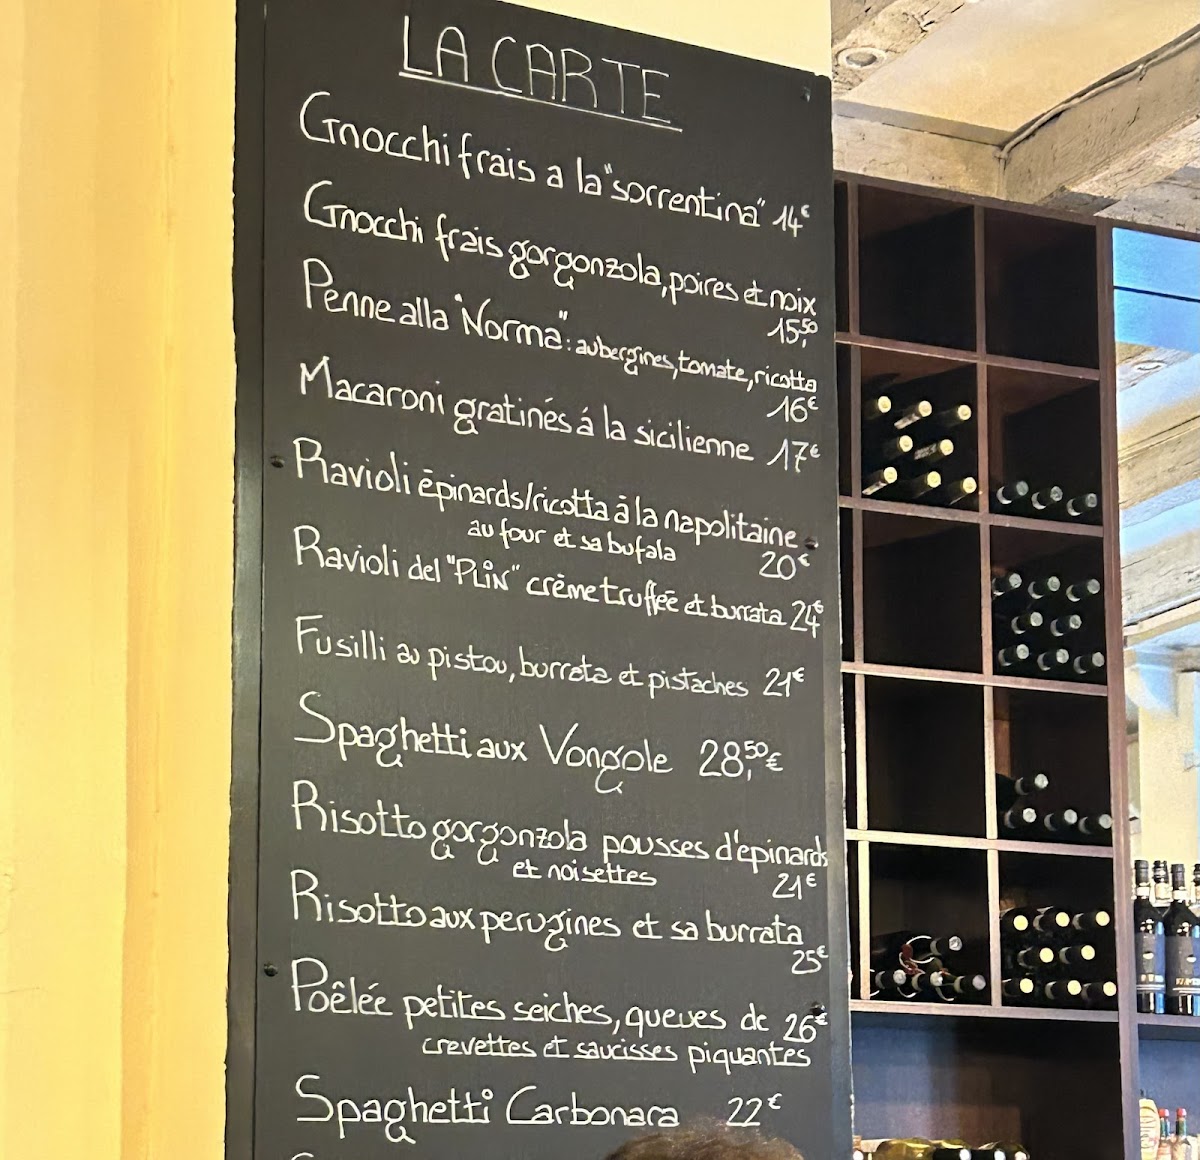 LA CARTE
Gnocchi frais a la "sorrentina" 14€
Gnocchi frais gorgonzola, poires et noix
15,50
Penne alla "Norma" : aubergines, tomate, ricotta
16€
Macaroni gratinés á la sicilienne 17€
Ravioli épinards/ricotta à la napolitaine
au four et sa bufala 20€
Ravioli del "PLiN" crème truffée et burrata 24€
Fusilli au pistou, burrata et pistaches 21€
Spaghetti aux Vongole 28,50€
Risotto gorgonzola pousses d'epinards
et noisettes 21€
Risotto aux perugines et sa burrata
25€
Poêlée petites seiches, queues de 26€
crevettes et saucisses piquantes
Spaghetti Carbonara 22€